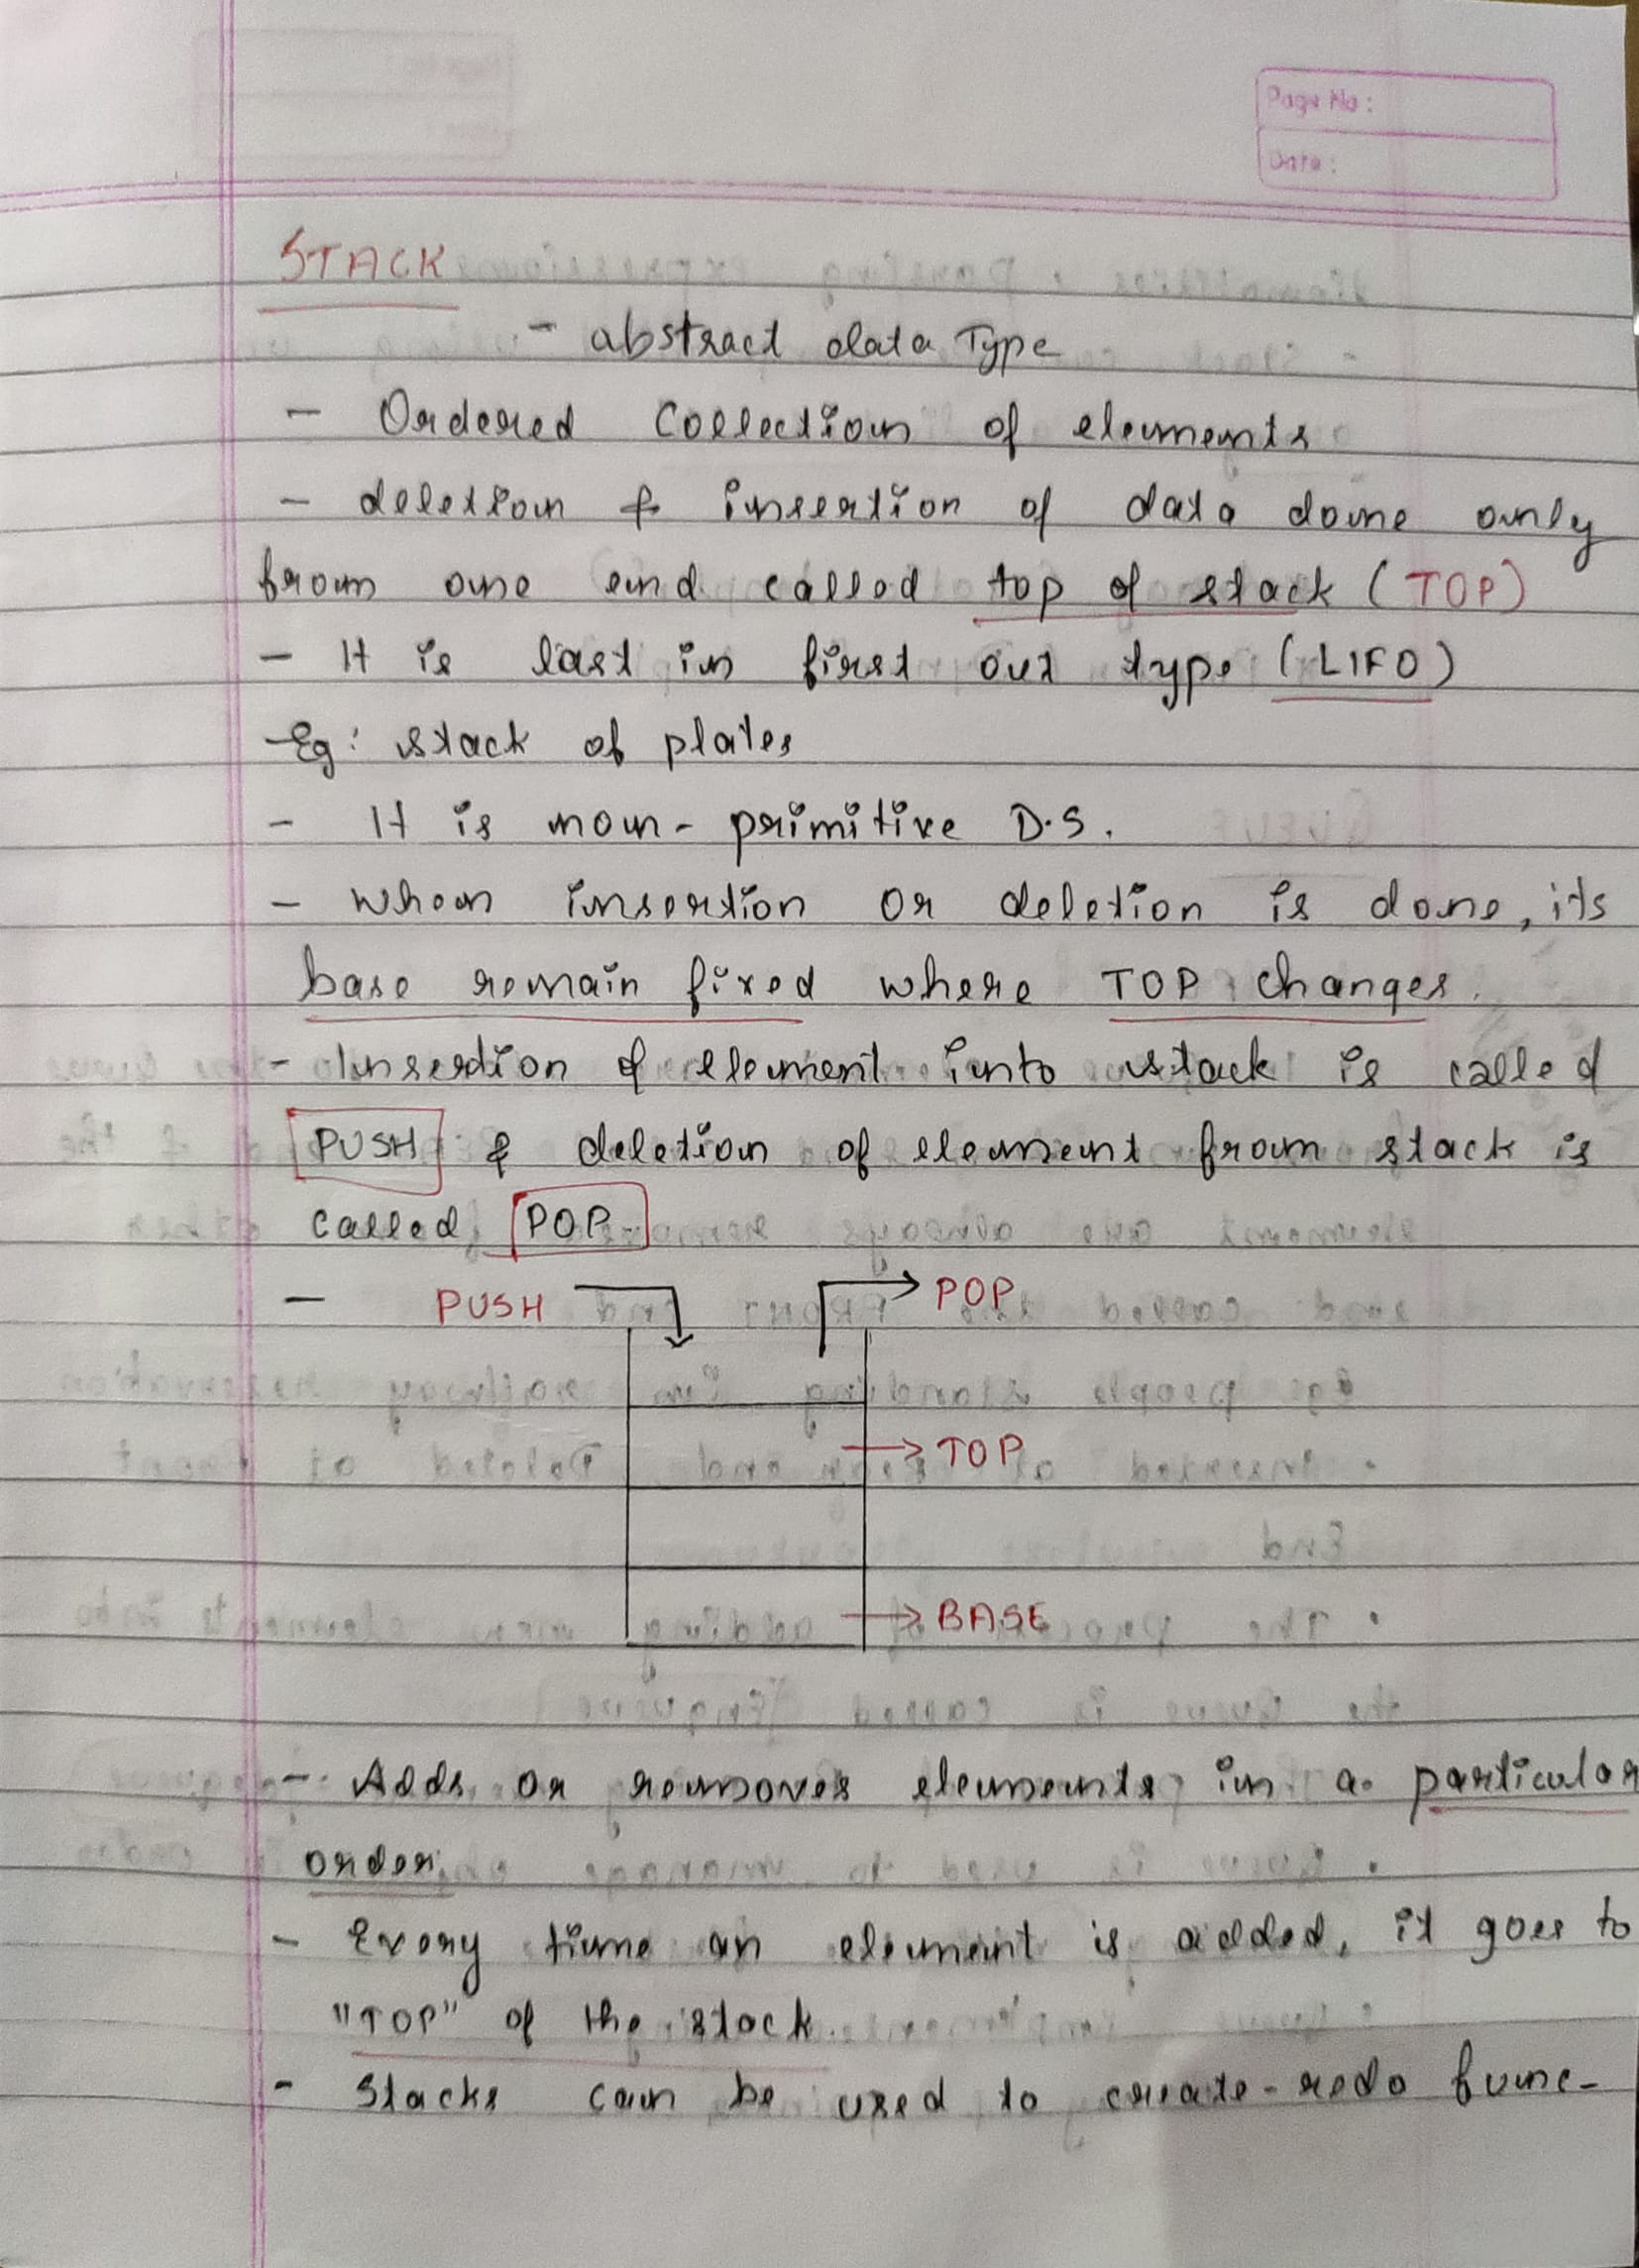 Page No :
Date :
STACK
- abstract data Type
- Ordered Collection of elements
- deletion & insertion of data done only
from one end called top of stack (TOP)
- It is last in first out type (LIFO)
- Eg: stack of plates
- It is non-primitive D.S.
- When insertion or deletion is done, its
base remain fixed where TOP changes.
- Insertion of element into stack is called
PUSH & deletion of element from stack is
called POP
- PUSH POP
TOP
BASE
- Adds or removes elements in a particular
order.
- Every time an element is added, it goes to
"TOP" of the stack
- Stacks can be used to create-redo func-